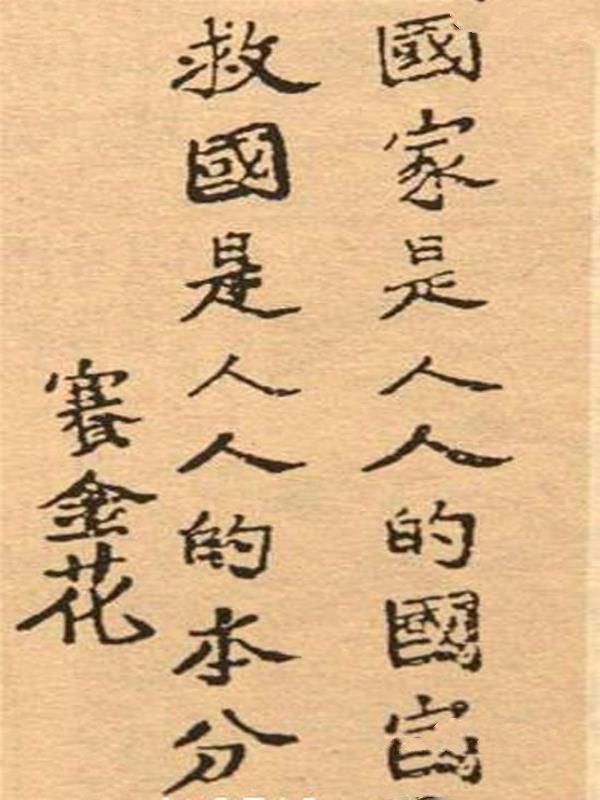 國家是人人的國
救國是人人的本分
賽金花